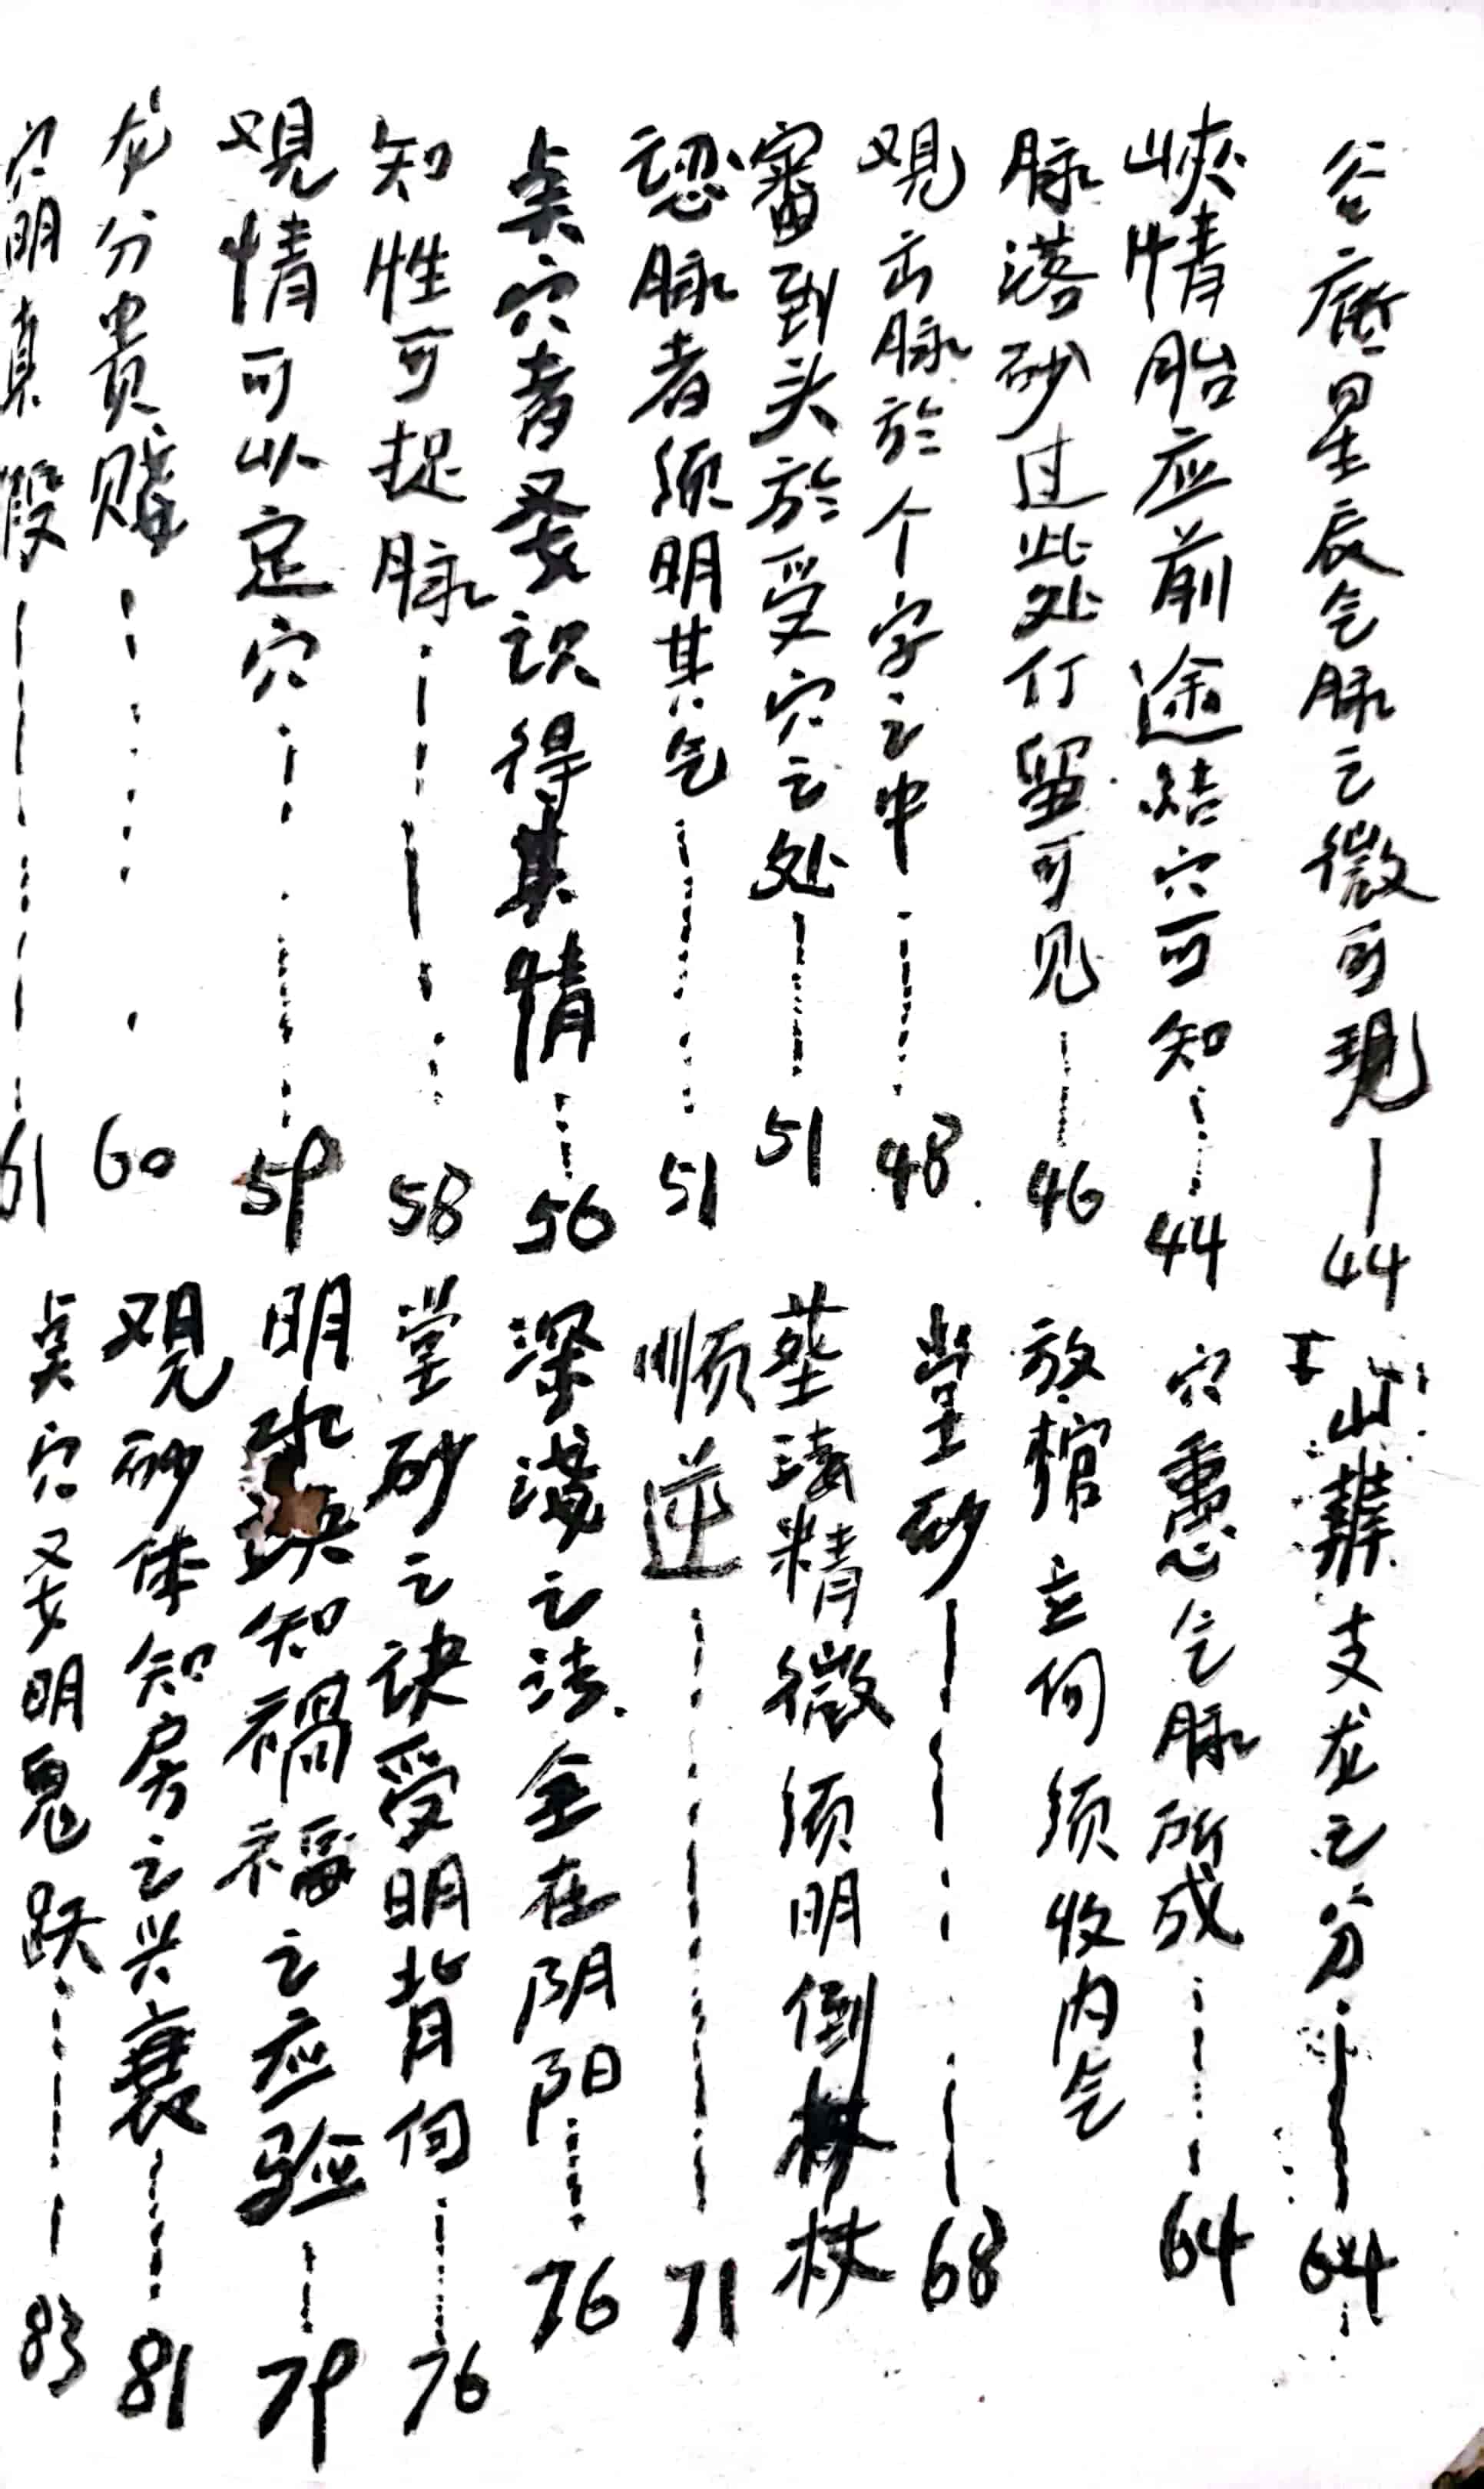 星辰气脉之微可现——44
峡情胎应前途结穴可知……44
脉落砂过此处仃留可见——46
观出脉於个字之中……48
審到头於受穴之处……51
認脉者须明其气……51
点穴者要识得其情……56
知性可捉脉……58
观情可以定穴……59
龙分贵贱……60
穴明真假……61
山 支龙之分……64
穴 气脉所成……64
放棺立向须收内气
堂砂……68
葬法精微须明倒杖
顺逆……71
深浅之法全在阴阳……76
堂砂之诀受明背向……76
明 知禍福之应验……79
观砂体知房之兴衰……81
点穴要明鬼跃……83